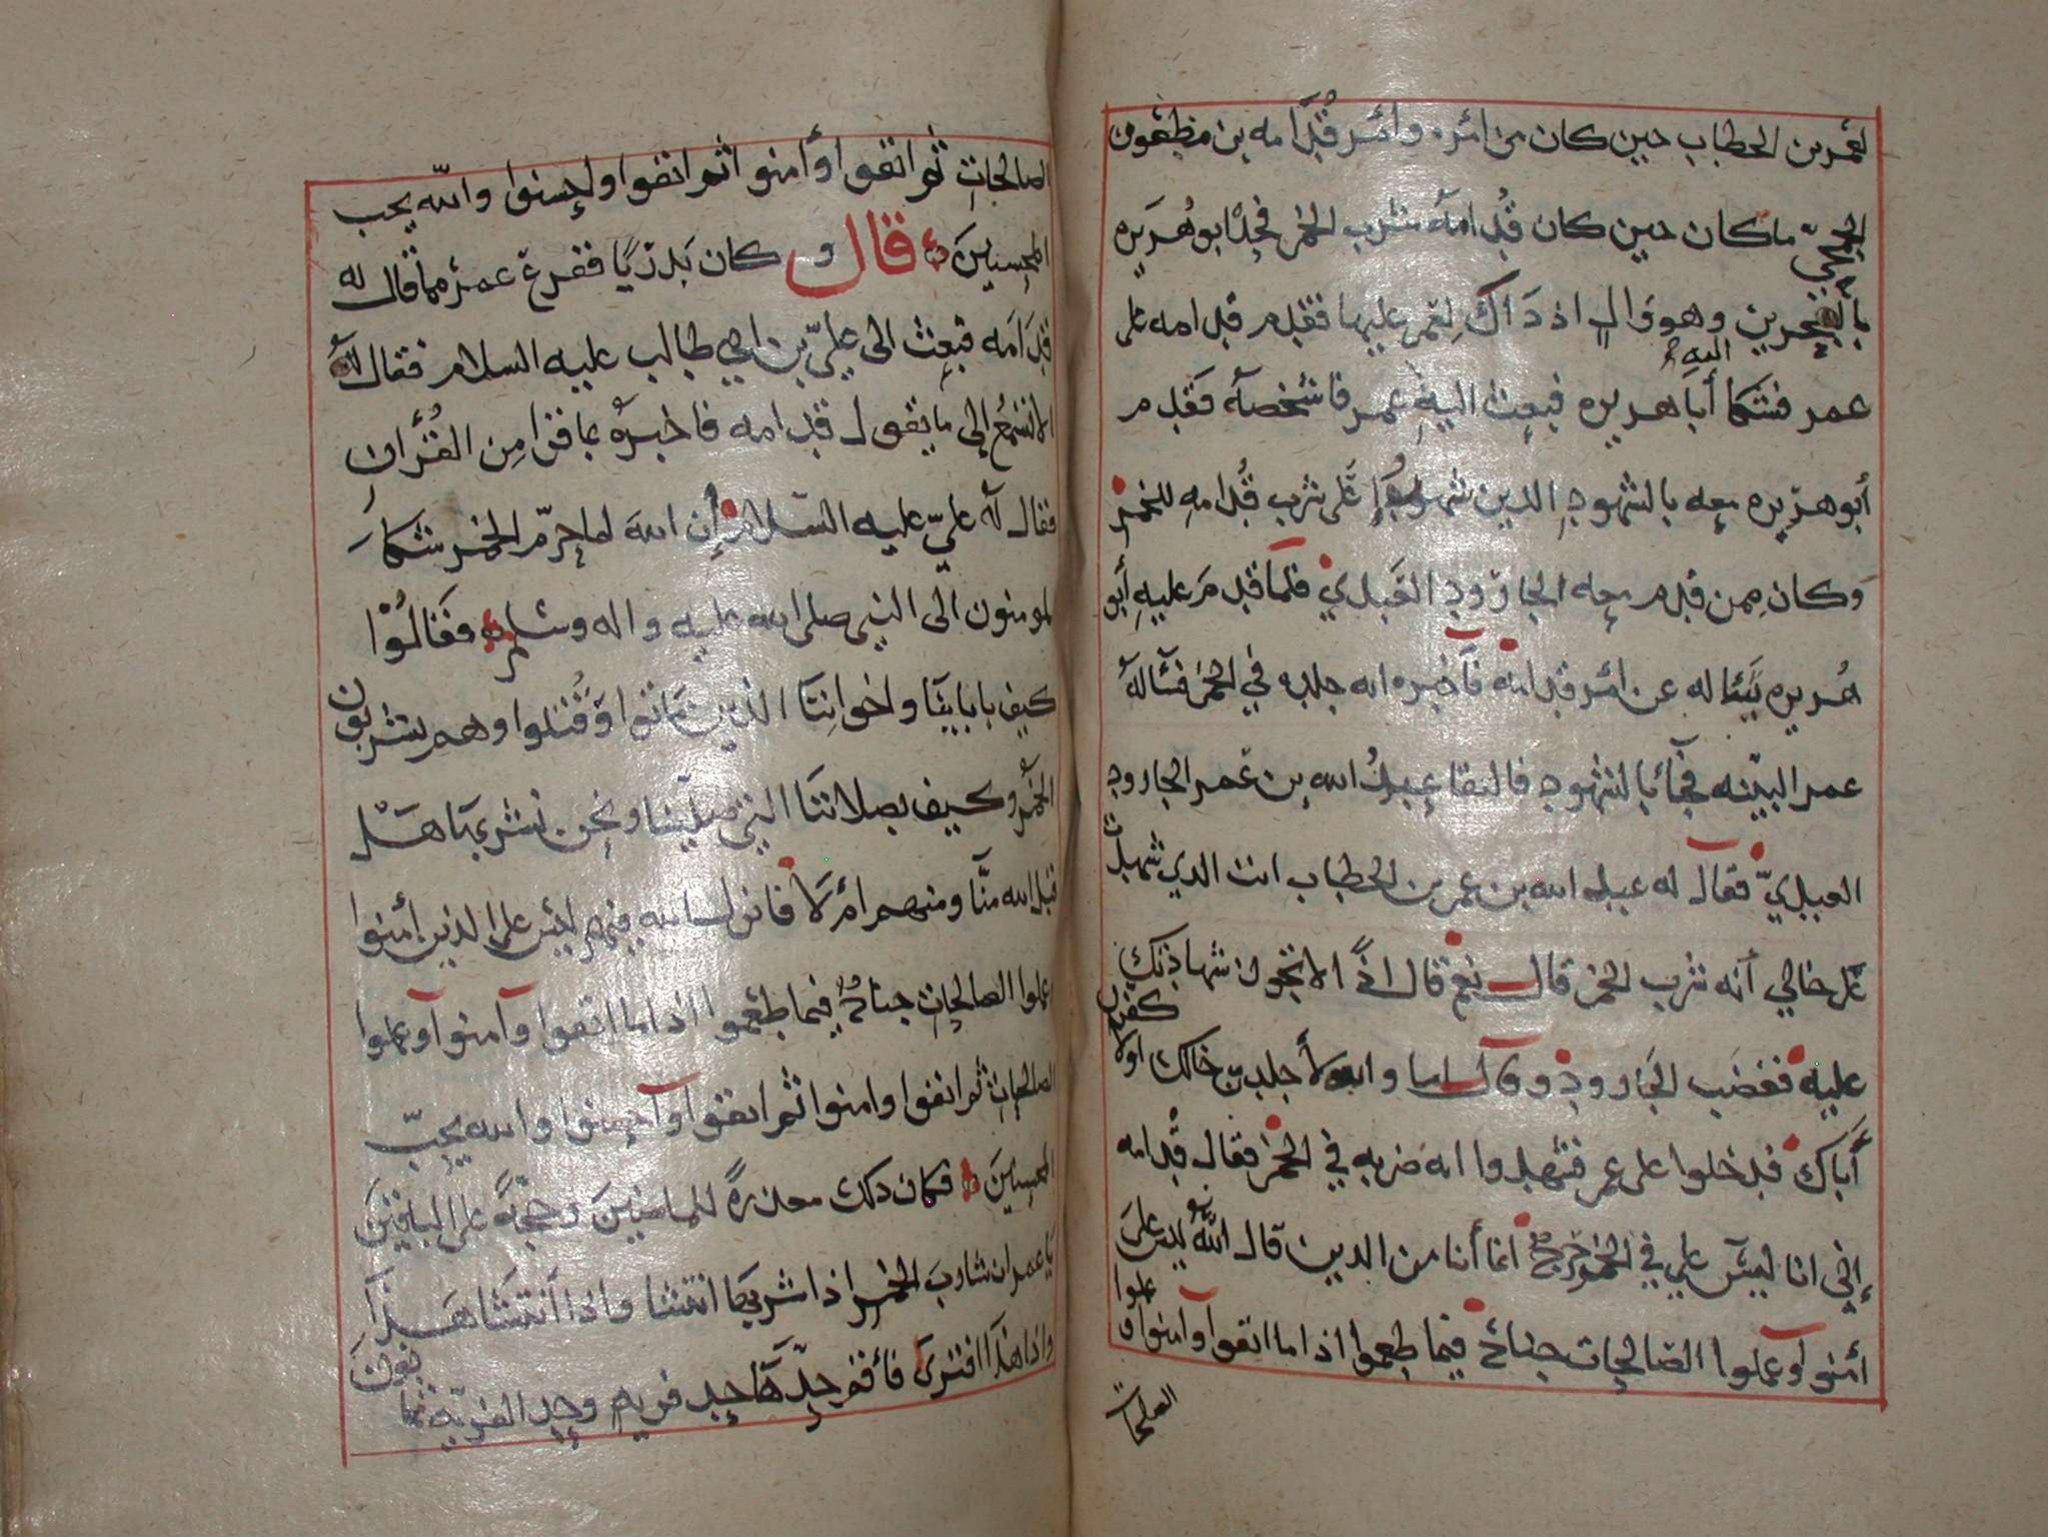 لعمر بن الخطاب حين كان من امره وامر قُدَامه بن مظعون
الجمحيّ ما كان حين كان قُدامه شرب الخمر فحدّ ابو هُرَيره
بالبحرين وهو وَالٍ اذ ذَاكَ لِعُمر عليها فقدم قدامه على
عمر فشكا أبَا هريره اليه فبعث اليهِ عمر فاشخصهُ فَقدم
أبو هريره معه بالشهود الدين شهدوا عَلَى شرب قُدامهِ للخمر
وَكان ممن قدم معه الجارود العَبدي فلما قدمَ عليهِ أبو
هُريره سأله عن امر قدامه فَاخبره انه جلده في الخمر فسَأله
عمر البيّنه فجآء بالشهود فالتقا عبدُ الله بن عُمر الجارود
العبديّ فقال له عبد الله بن عمر بن الخطاب انت الدي شهدت
عَلى خالي أنه شرب الخمر قال نعم قال اذًا لا تجوز شهادتك
عليه فغضب الجَارود وقال اما والله لأجلدنّ خالك اولاكفرن
أَباك فدخلوا على عمر فشهدوا انه ضربه في الخمر فقال قُدامه
إني انا ليسَ علي في الخمر حرجٌ انما أنا من الدين قال اللهُ ليس علىَ
أمنوا وعملوا الصالحات جناحٌ فيما طعموا اذا ما اتقوا وآمنوا وعملوا
الصالحات
الصالحاتِ ثم اتقوا وأمنوا ثم اتقوا واحسنوا والله يحب
المحسنينَ قال وكان بَدريًا ففرع عمرُ مما قال له
قُدَامَه فبعث الى عليّ بن ابي طالب عليه السلام فقال لهُ
الا تَسْمعُ الى ما يقول قدامه فاخبرهُ بما قرا مِن القُرأن
فقال لهُ عليّ عليه السّلام إن اللهَ لما حرّم الخمر شكا
المومنون الى النبي صلى الله عليه واله وسلم فقَالُوْا
كيف بابَاينَا واخوانِنَا الذين مَاتوا وَقُتلوا وهم يشربون
الخمرُ وكيف بصلاتنَا التي صلّينا ونحن نشربهَا هَلْ
قبل الله منَّا ومنهم أم لَا فانزل الله فيهم ليْسَ على الذين أمنوا
وعملوا الصالحاتِ جناحٌ فيما طعموا اذا ما اتقوا وآمنوا وعملوا
الصالحاتِ ثم اتقوا وامنوا ثم اتقوا وأحسنوا والله يحبّ
المحسنينَ فكان دلك معذرةً للماضيينَ وحجّةً على الباقينَ
يا عمر ان شاربَ الخمر اذا شربهَا انتشا واذا أنتشَا هَذَا
واذا هذَا افترى فأقم حدّهَا حد فريهٍ وحد الفريه ثمانون